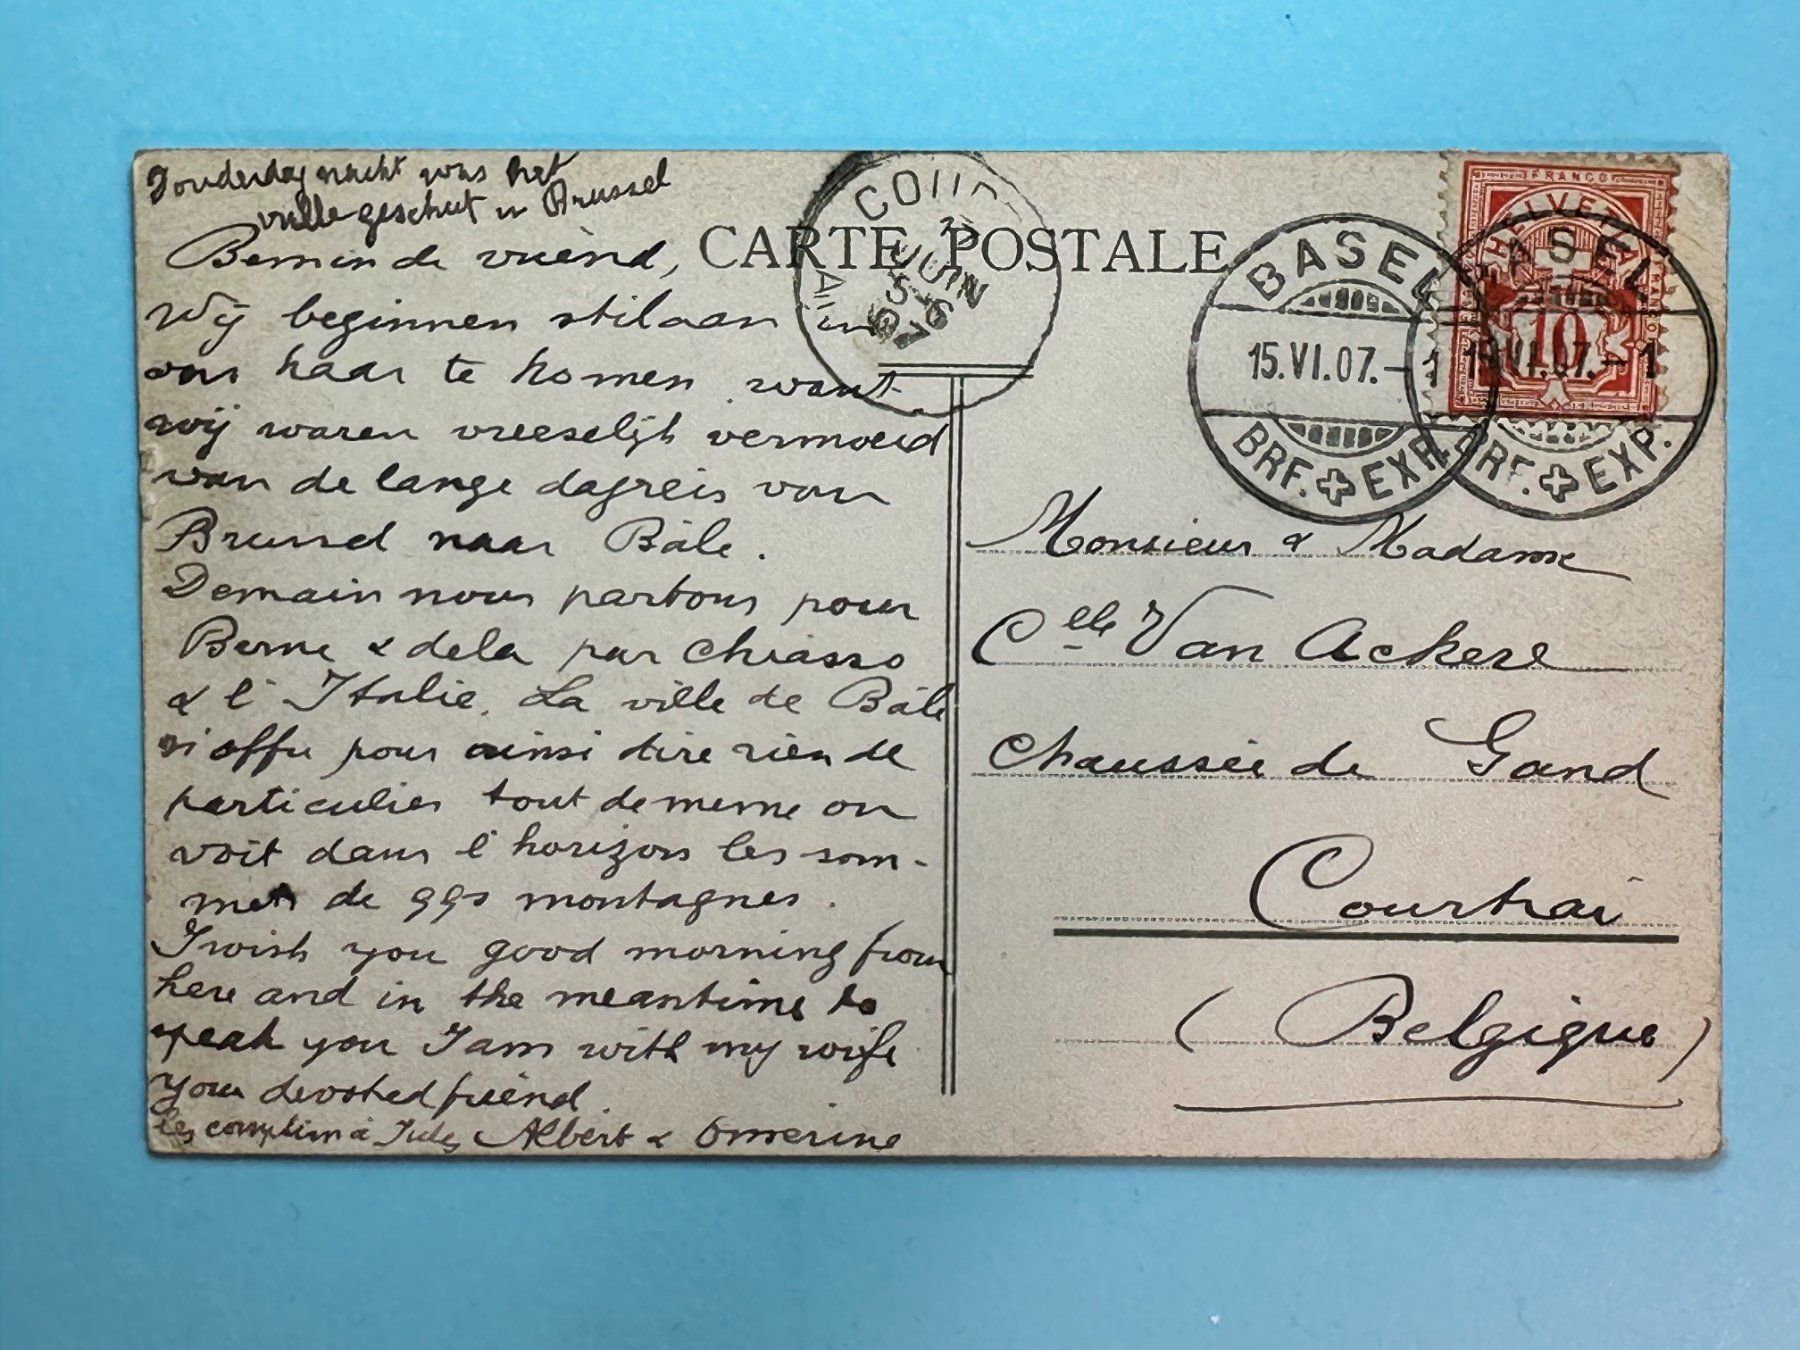 Donderdag nacht was het
volle geschut in Brussel
Beminde vriend,
Wij beginnen stilaan in
ons haar te komen want
wij waren vreeselijk vermoeid
van de lange dagreis van
Brussel naar Bâle.
Demain nous partons pour
Berne & dela par Chiasso
& l'Italie. La ville de Bâle
n'offre pour ainsi dire rien de
particulier tout de meme on
voit dans l'horizon les som-
mets de ggs montagnes.
I wish you good morning from
here and in the meantime to
speak you I am with my wife
Your devoted friend.
les complim à Jules Albert & Omerine
CARTE POSTALE
COU
JUIN
5-6
07
BASEL
15.VI.07.-1
BRF. EXP.
BASEL
15.VI.07.-1
BRF. EXP.
FRANCO
HELVETIA
10
Monsieur & Madame
Clle Van Ackere
Chaussée de Gand
Courtrai
(Belgique)